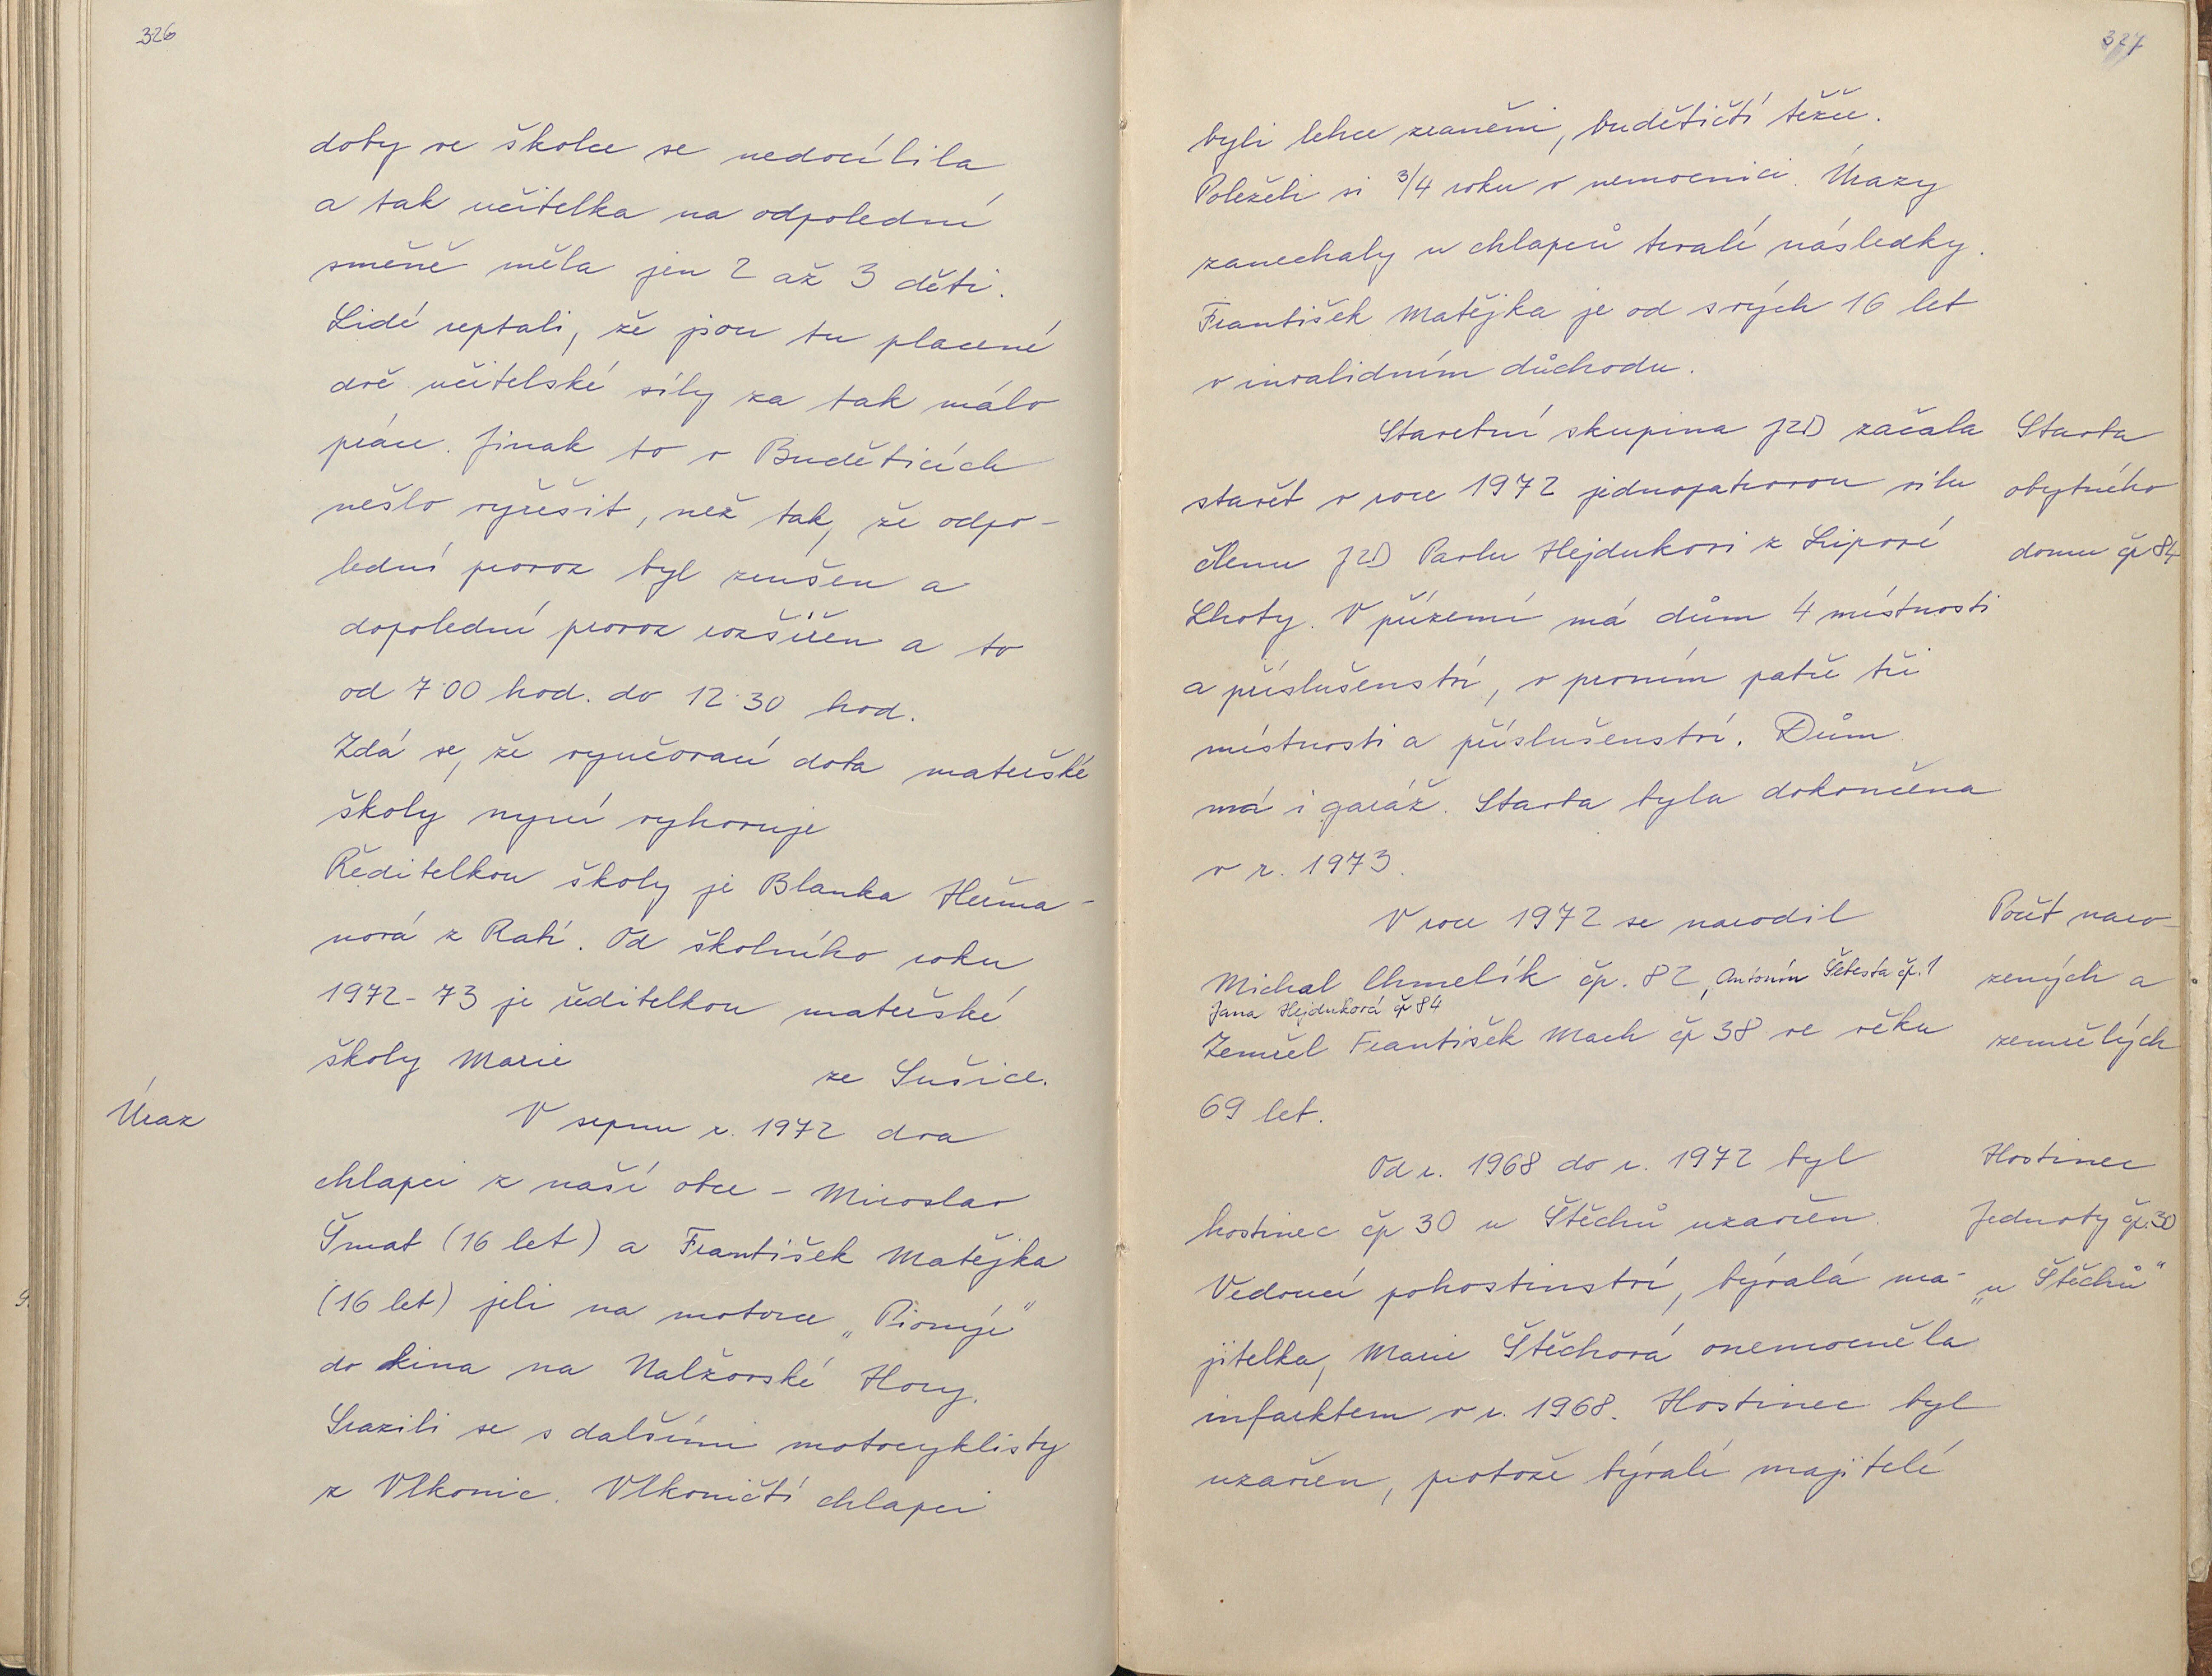 326
doby ve školce se nedocílila
a tak učitelka na odpolední
směně měla jen 2 až 3 děti.
Lidé reptali, že jsou tu placené
dvě učitelské síly za tak málo
práce. Jinak to v Buděticích
nešlo vyřešit, než tak, že odpo-
lední provoz byl zrušen a
dopolední provoz rozšířen a to
od 7.00 hod. do 12.30 hod.
Zdá se, že vyučovací doba mateřské
školy nyní vyhovuje
Ředitelkou školy je Blanka Heřma-
nová z Rabí. Od školního roku
1972-73 je ředitelkou mateřské
školy Marie ze Sušice.
Úraz
V srpnu r. 1972 dva
chlapci z naší obce - Miroslav
Šmat (16 let) a František Matějka
(16 let) jeli na motorce „Pionýr"
do kina na Nalžovské Hory.
Srazili se s dalšími motocyklisty
z Vlkonic. Vlkoničtí chlapci
327
byli lehce zraněni, budětičtí těžce.
Poleželi si 3/4 roku v nemocnici. Úrazy
zanechaly u chlapců trvalé následky.
František Matějka je od svých 16 let
v invalidním důchodu.
Stavební skupina JZD začala
stavět v roce 1972 jednopatrovou vilu
členu JZD Pavlu Hejdukovi z Lipové
Lhoty. V přízemí má dům 4 místnosti
a příslušenství, v prvním patře tři
místnosti a příslušenství. Dům
má i garáž. Stavba byla dokončena
v r. 1973.
Stavba
obytného
domu čp 84
V roce 1972 se narodil
Michal Chmelík čp. 82, Antonín Šebesta čp. 1
Jana Hejduková čp 84
Zemřel František Mach čp 38 ve věku
69 let.
Počet naro-
zených a
zemřelých
Od r. 1968 do r. 1972 byl
hostinec čp 30 u Štěchů uzavřen.
Vedoucí pohostinství, bývalá ma-
jitelka, Marie Štěchová onemocněla
infarktem v r. 1968. Hostinec byl
uzavřen, protože bývalé majitelé
Hostinec
Jednoty čp. 30
„u Štěchů"